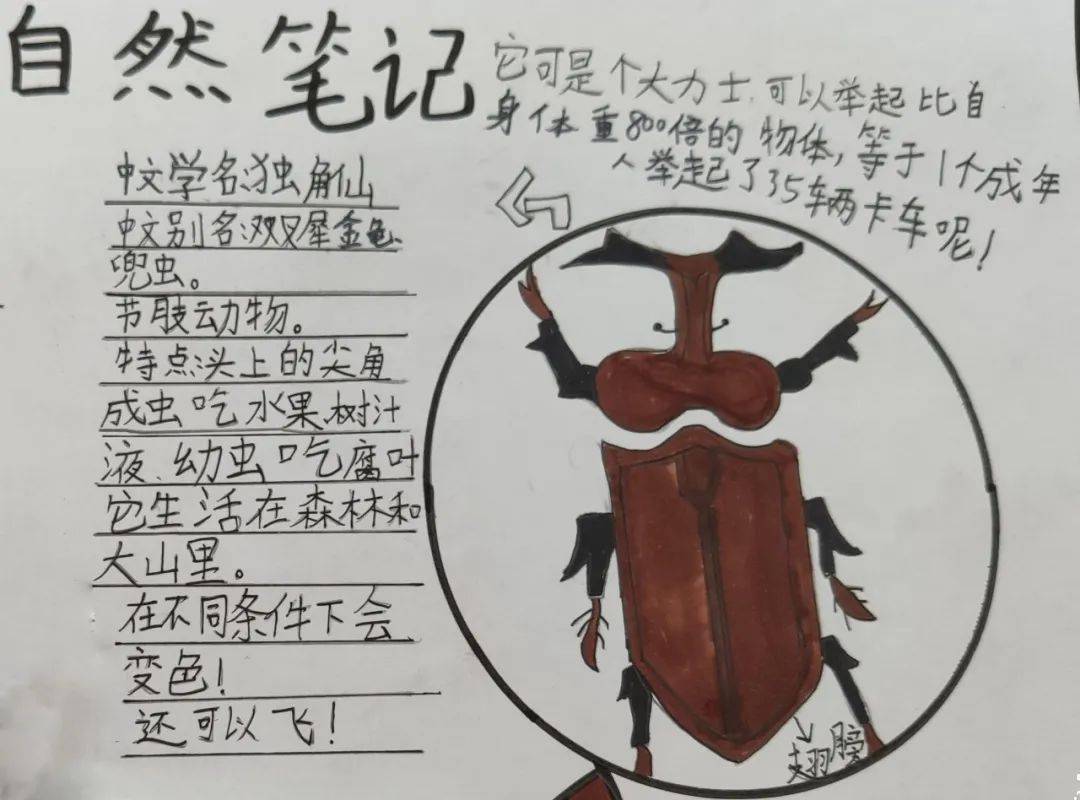 自然笔记
它可是个大力士,可以举起比自
身体重800倍的物体,等于1个成年
人举起了35车辆卡车呢!
中文学名:独角仙
中文别名:双叉犀金龟、
兜虫。
节肢动物。
特点:头上的尖角
成虫吃水果、树汁
液、幼虫吃腐叶
它生活在森林和
大山里。
在不同条件下会
变色!
还可以飞!
翅膀